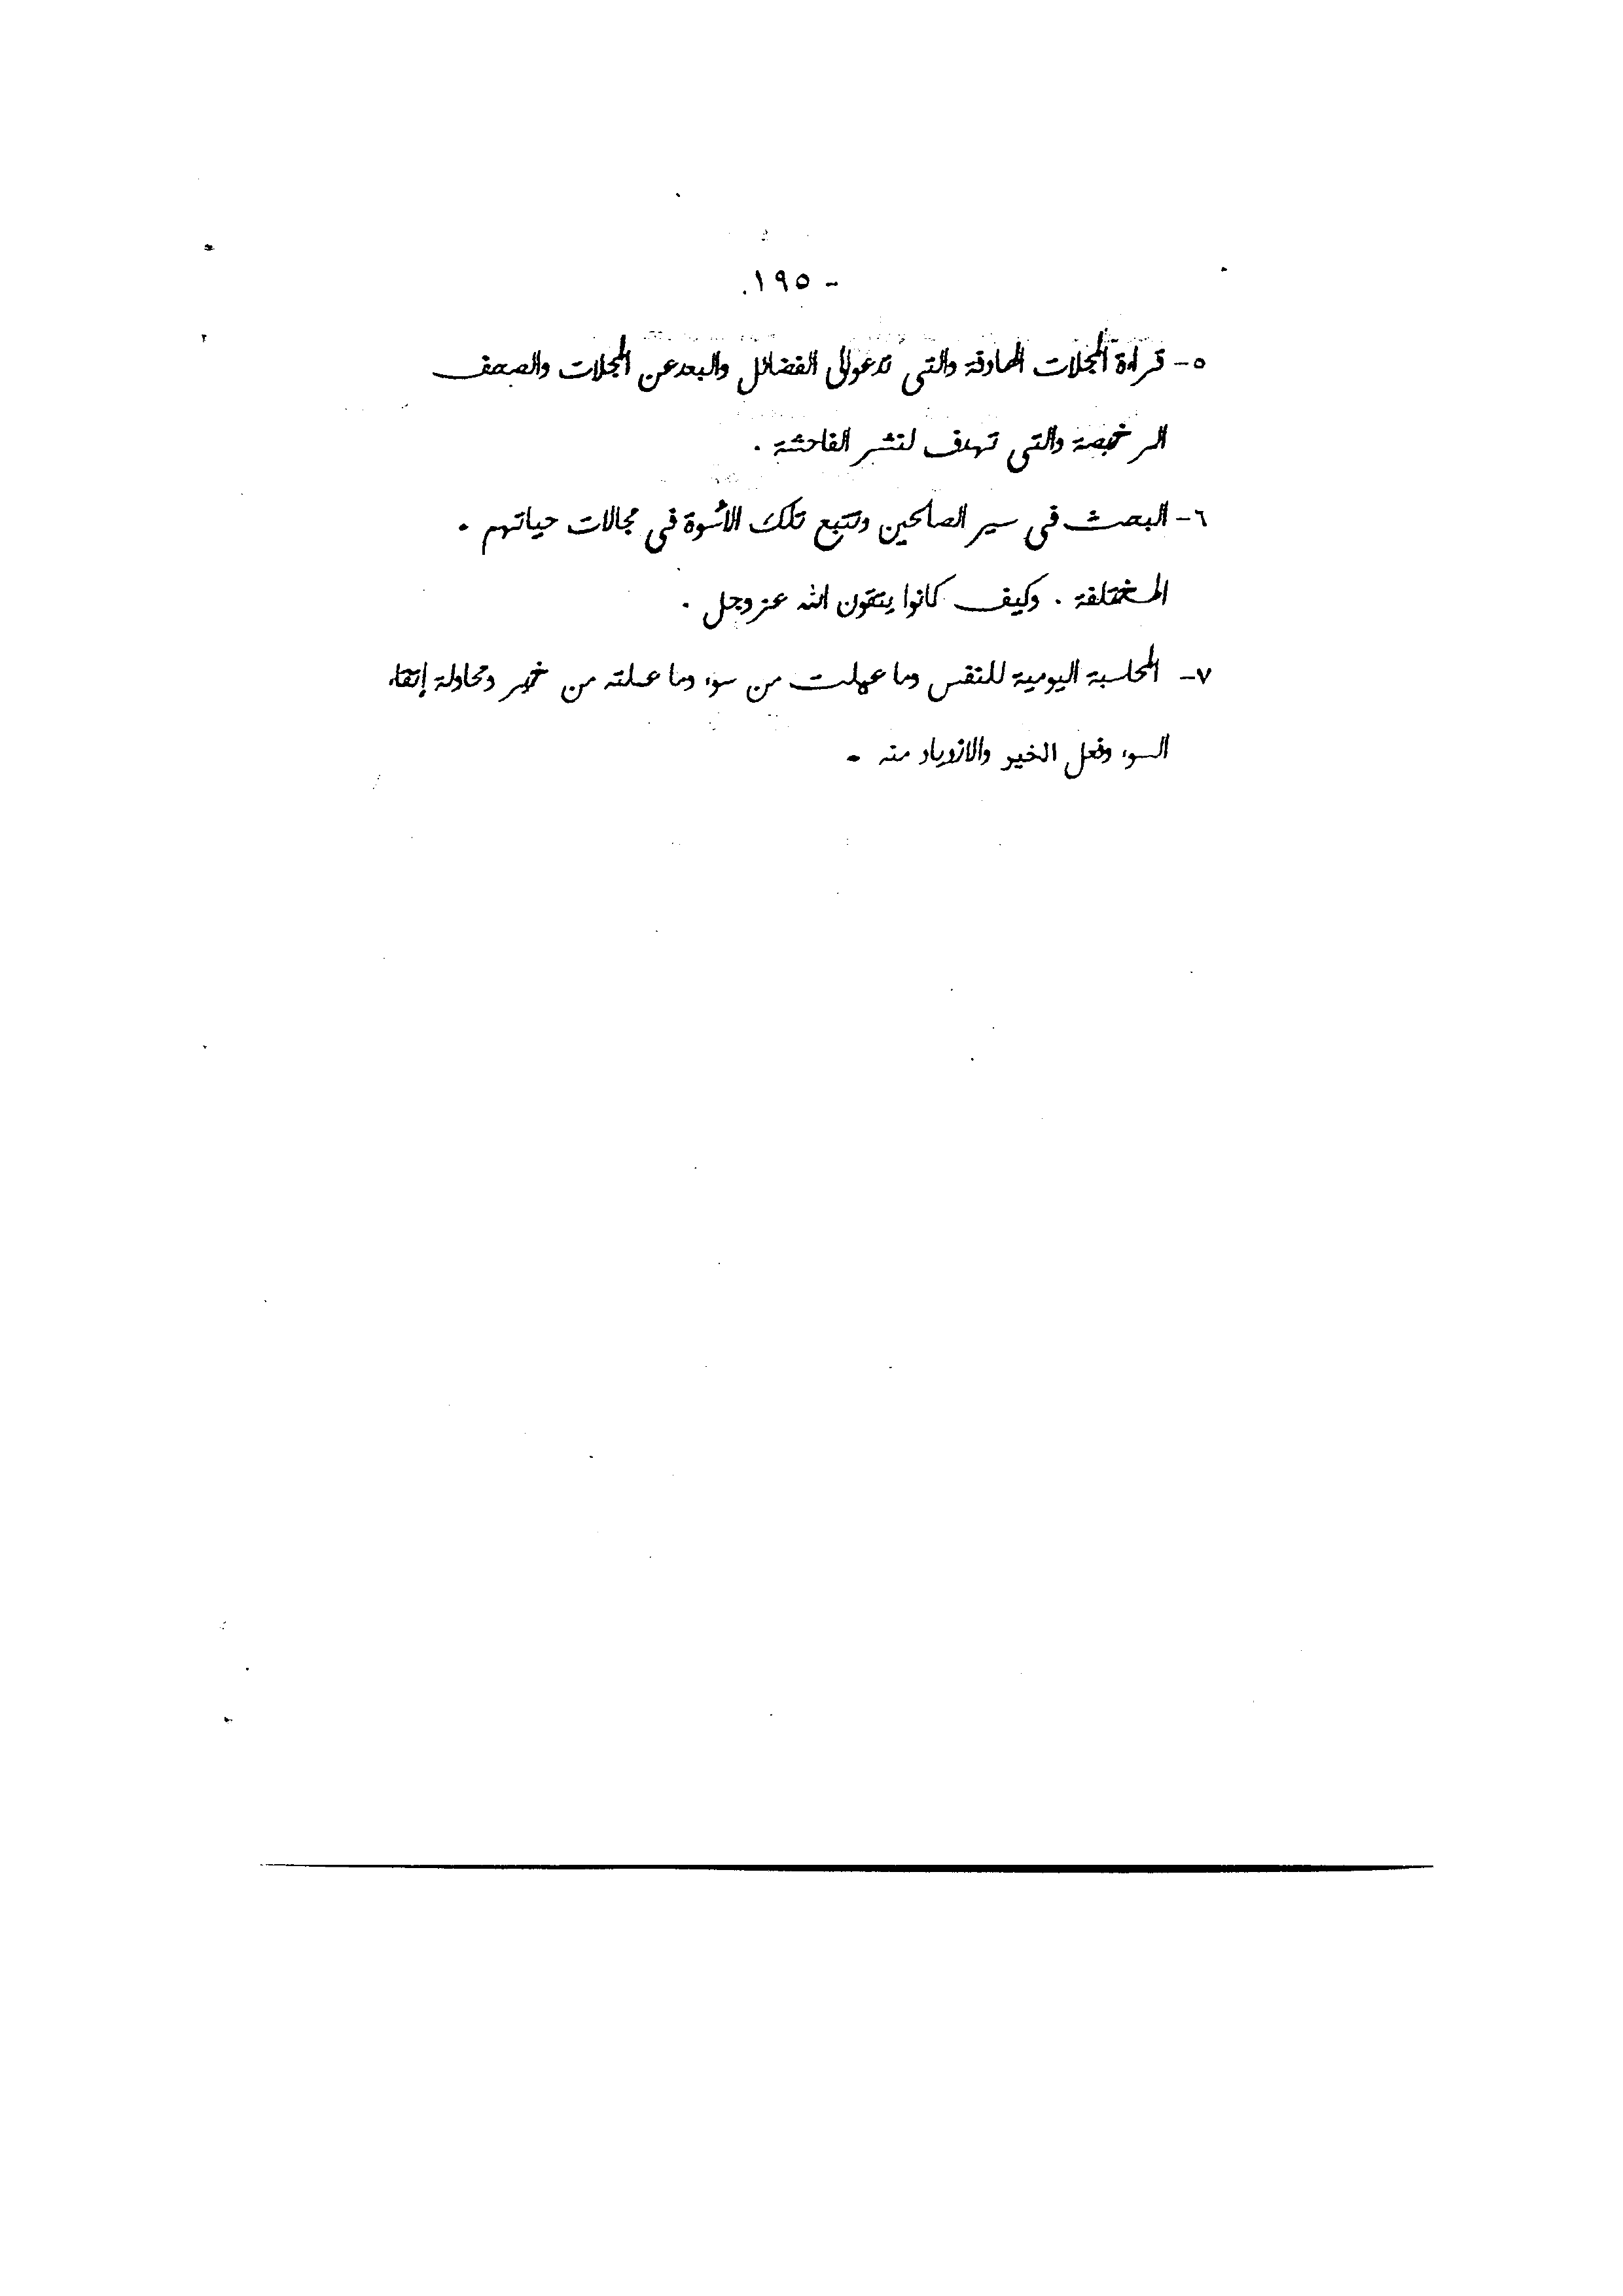 - ١٩٥.
٥- قراءة المجلات الهادفة والتي تدعو إلى الفضائل والبعد عن المجلات والصحف
الرخيصة والتي تهدف لنشر الفاحشة .
٦- البحث في سير الصالحين وتتبع تلك الأسوة في مجالات حياتهم .
المختلفة . وكيف كانوا يتقون الله عز وجل .
٧- المحاسبة اليومية للنفس وما عملت من سوء وما عملته من خير ومحاولة إتقاء
السوء وفعل الخير والازدياد منه .